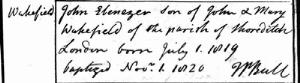 Wakefield John Ebenezer Son of John & Mary
Wakefield of the parish of Shoreditch
London born July 1. 1819
baptized Nov. 1. 1820